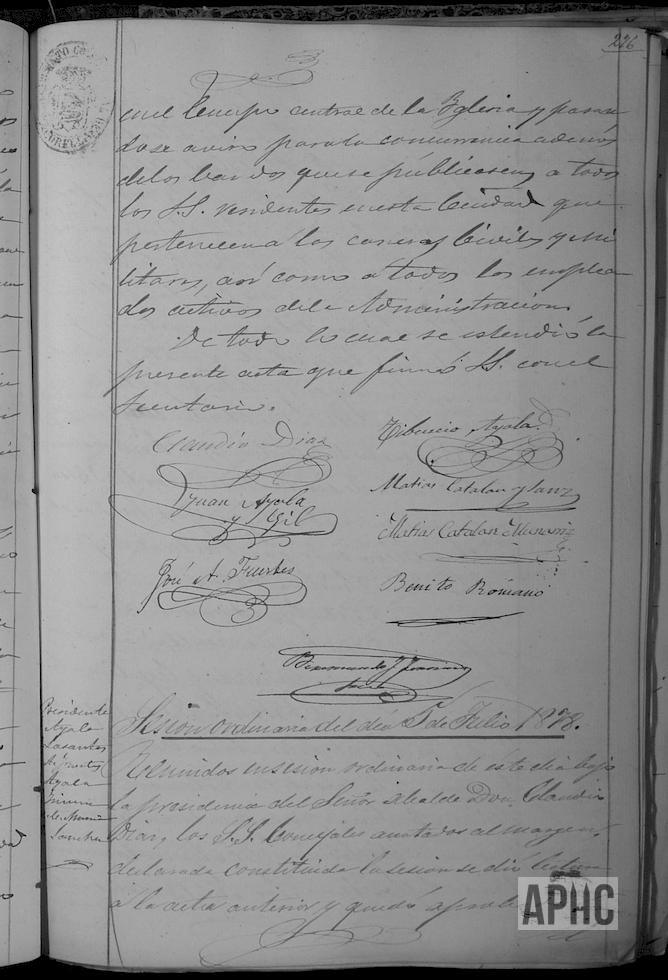 276
en el Cuerpo central de la Yglesia y pasan
dose aviso para la concurrencia ademas
de los bandos que se públicasen, a todos
los S.S. residentes en esta Ciudad que
pertenecen á las carreras Civiles y Mi
litares, así como á todos los emplea
dos activos de la Administracion.
De todo lo cual se estendió la
presente acta que firmó S.S. con el
Secretario.
Claudio Diaz
Tiburcio Ayala
Juan Ayala
y Gil
Matias Catalan y Sanz
Matias Catalan
José A. Fuertes
Benito Romano
Presidente
Ayala
Lasantas
Fuertes
Ayala
Sanchez
Sesion ordinaria del dia 5 de Julio 1878.
Reunidos en sesion ordinaria de este dia bajo
la presidencia del Señor Alcalde Don Claudio
Diaz, los S.S. Concejales anotados al margen,
declarada constituida la sesion se dió lectura
á la acta anterior y quedó
APHC